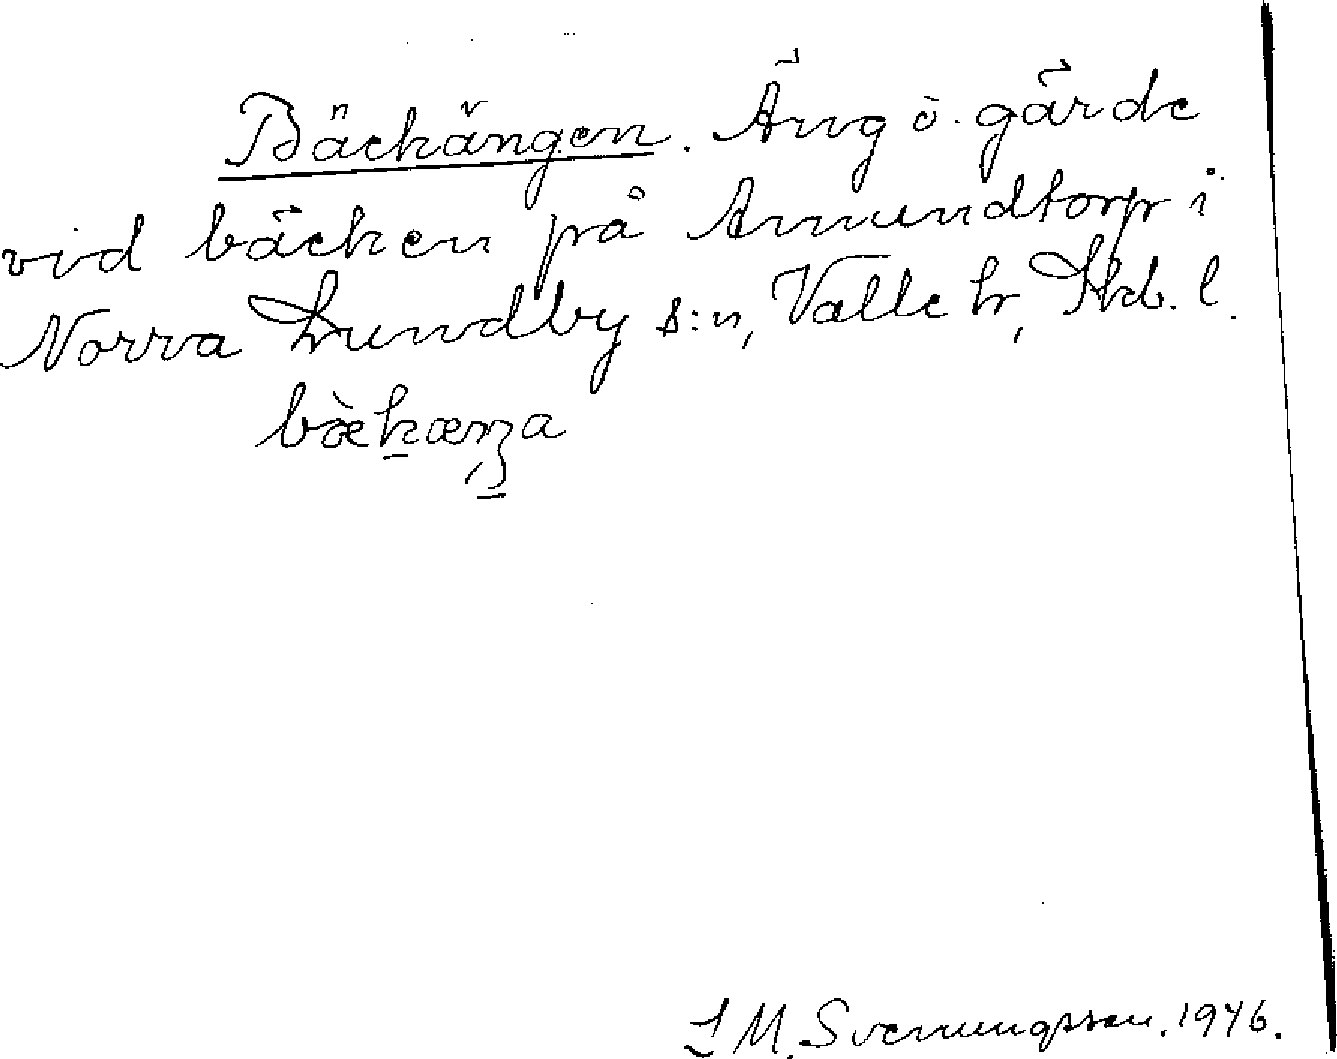 Bäckängen. Äng o. gärde
vid bäcken på Amundtorp i
Norra Lundby s:n, Valle h, Skb. l.
bæ̀kæŋa
I M. Svenungsson. 1946.